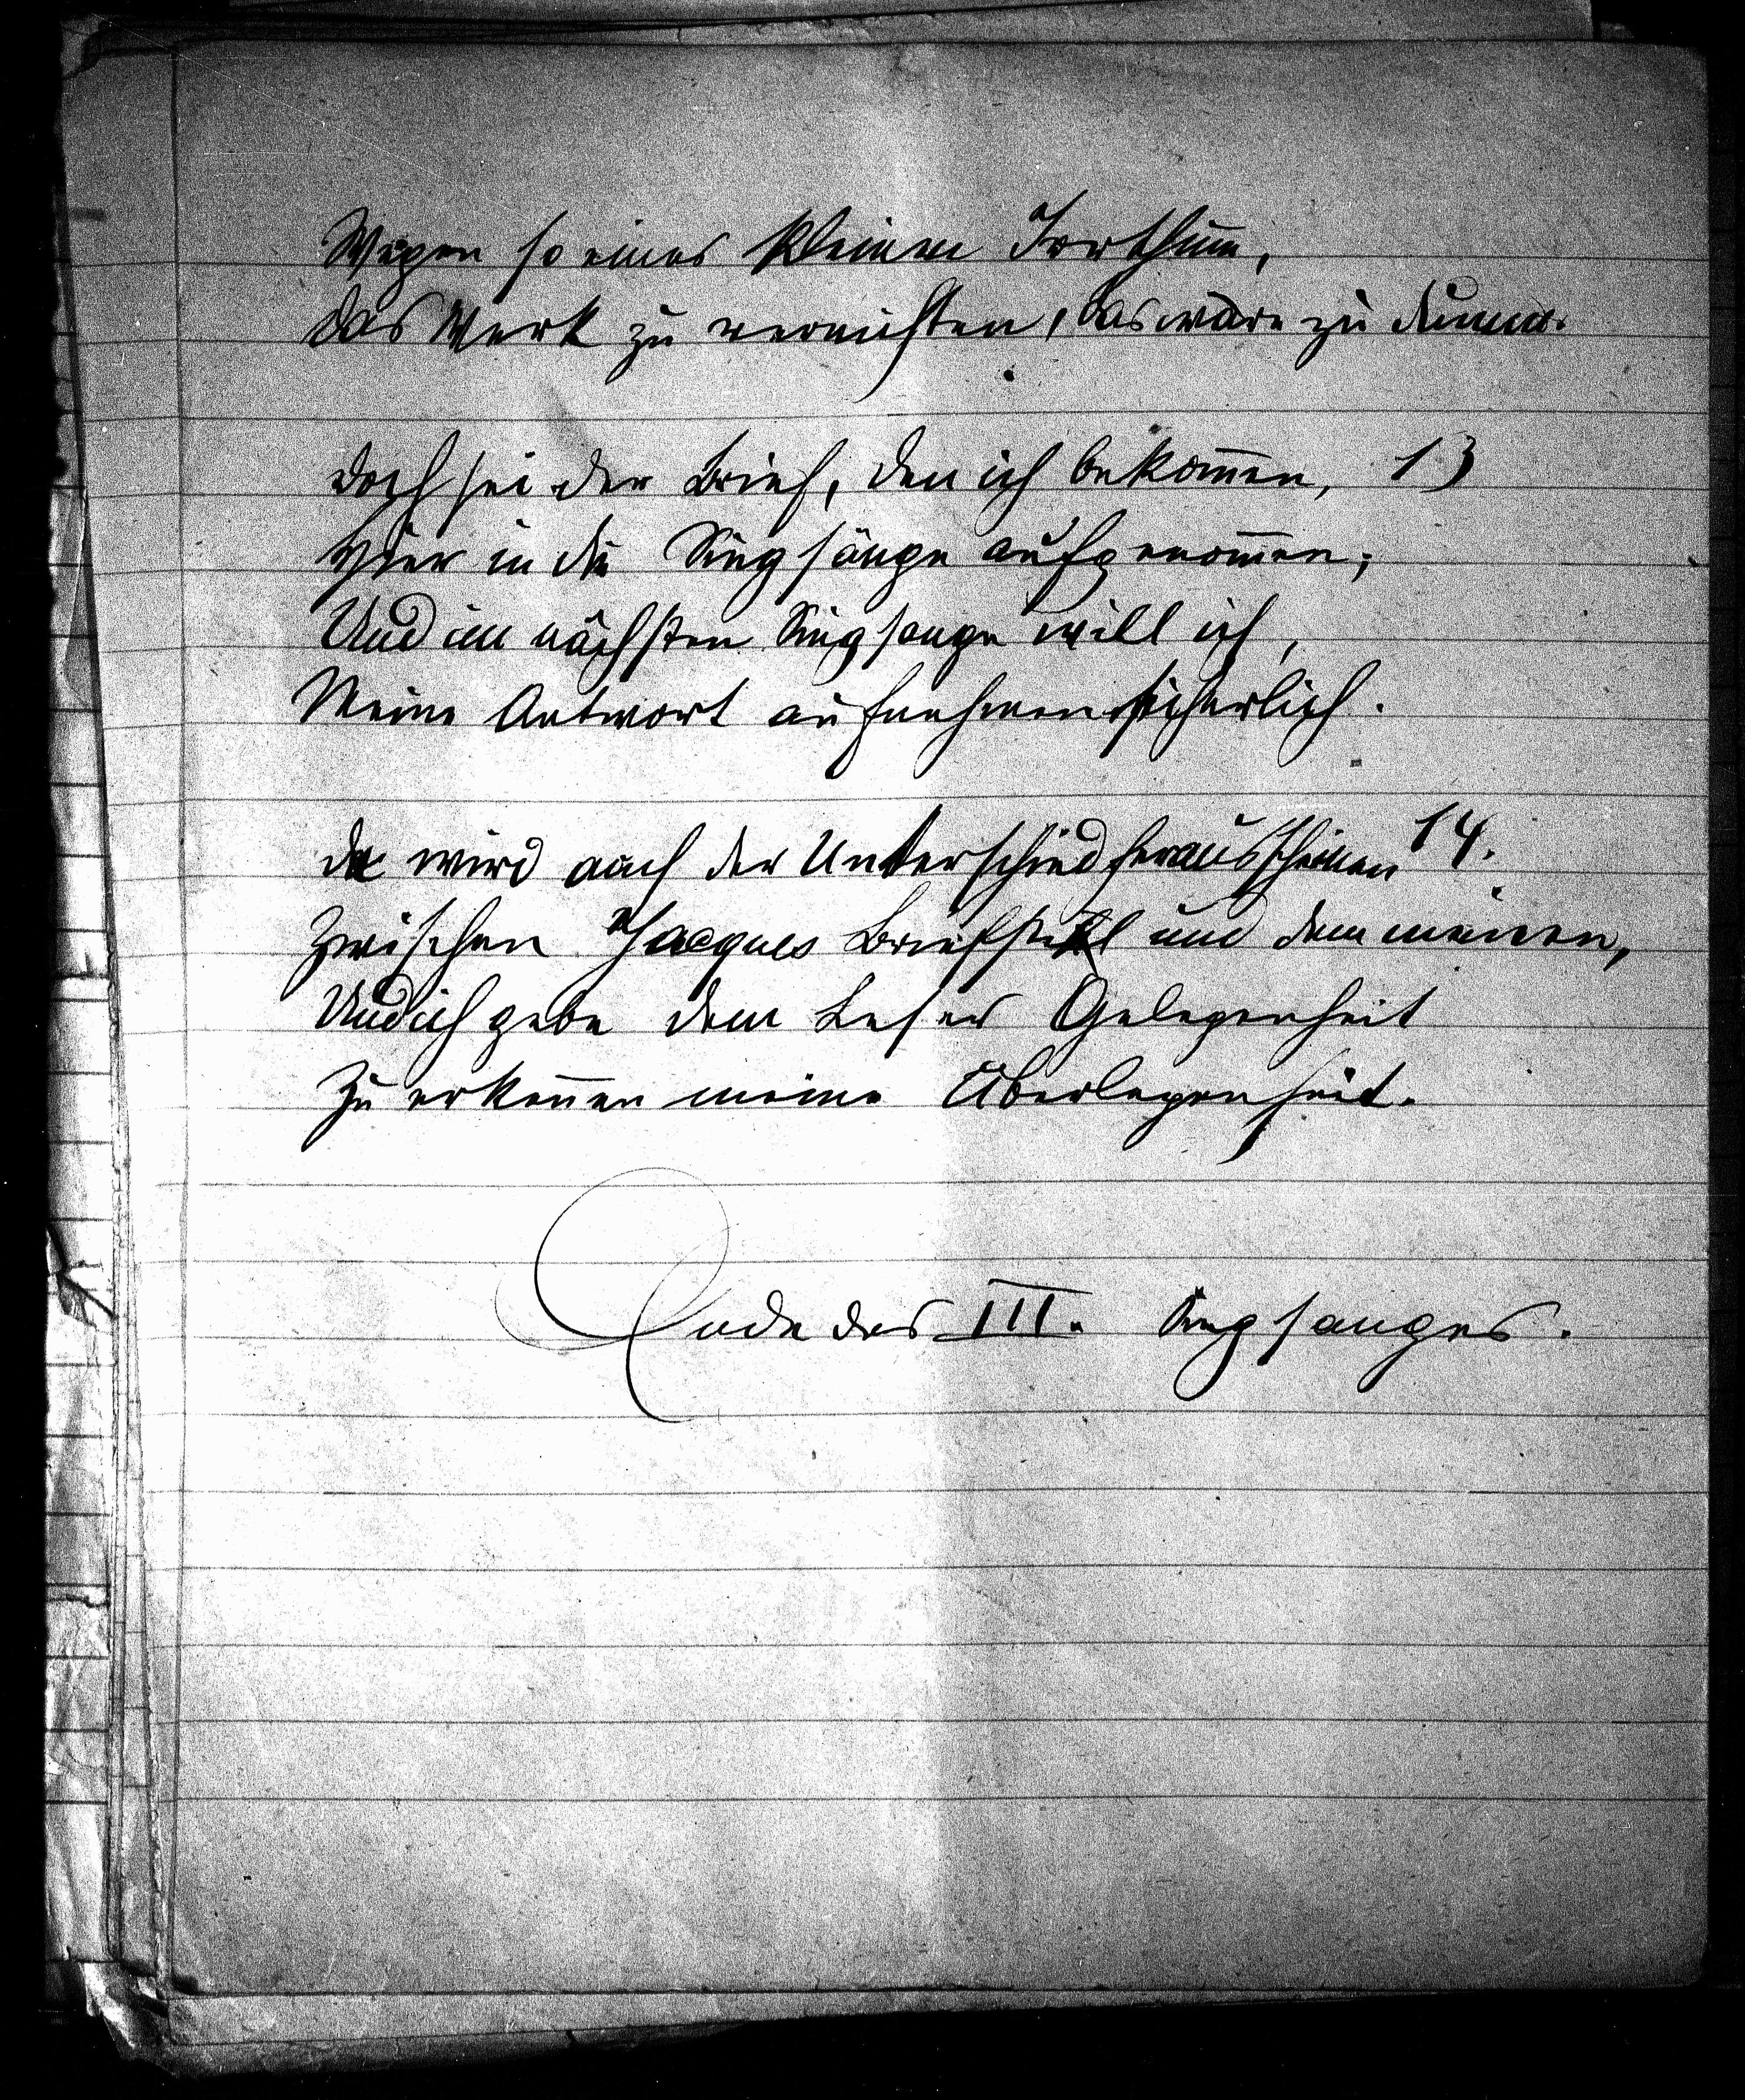 Wegen so eines kleinen Irrthum,
das Werk zu vernichten, das wäre zu dumm.
Doch sei der Brief, den ich bekom̅en, 13
Hier in die Singsänge aufgenom̅en;
Und im nächsten Singsange will ich,
Meine Antwort aufnehmen sicherlich.
Da wird auch der Unterschied herausscheinen 14.
Zwischen Jacques Briefstil und dem meinen,
Und ich gebe dem Leser Gelegenheit
Zu erken̅en meine Überlegenheit.
Ende des III. Singsanges.